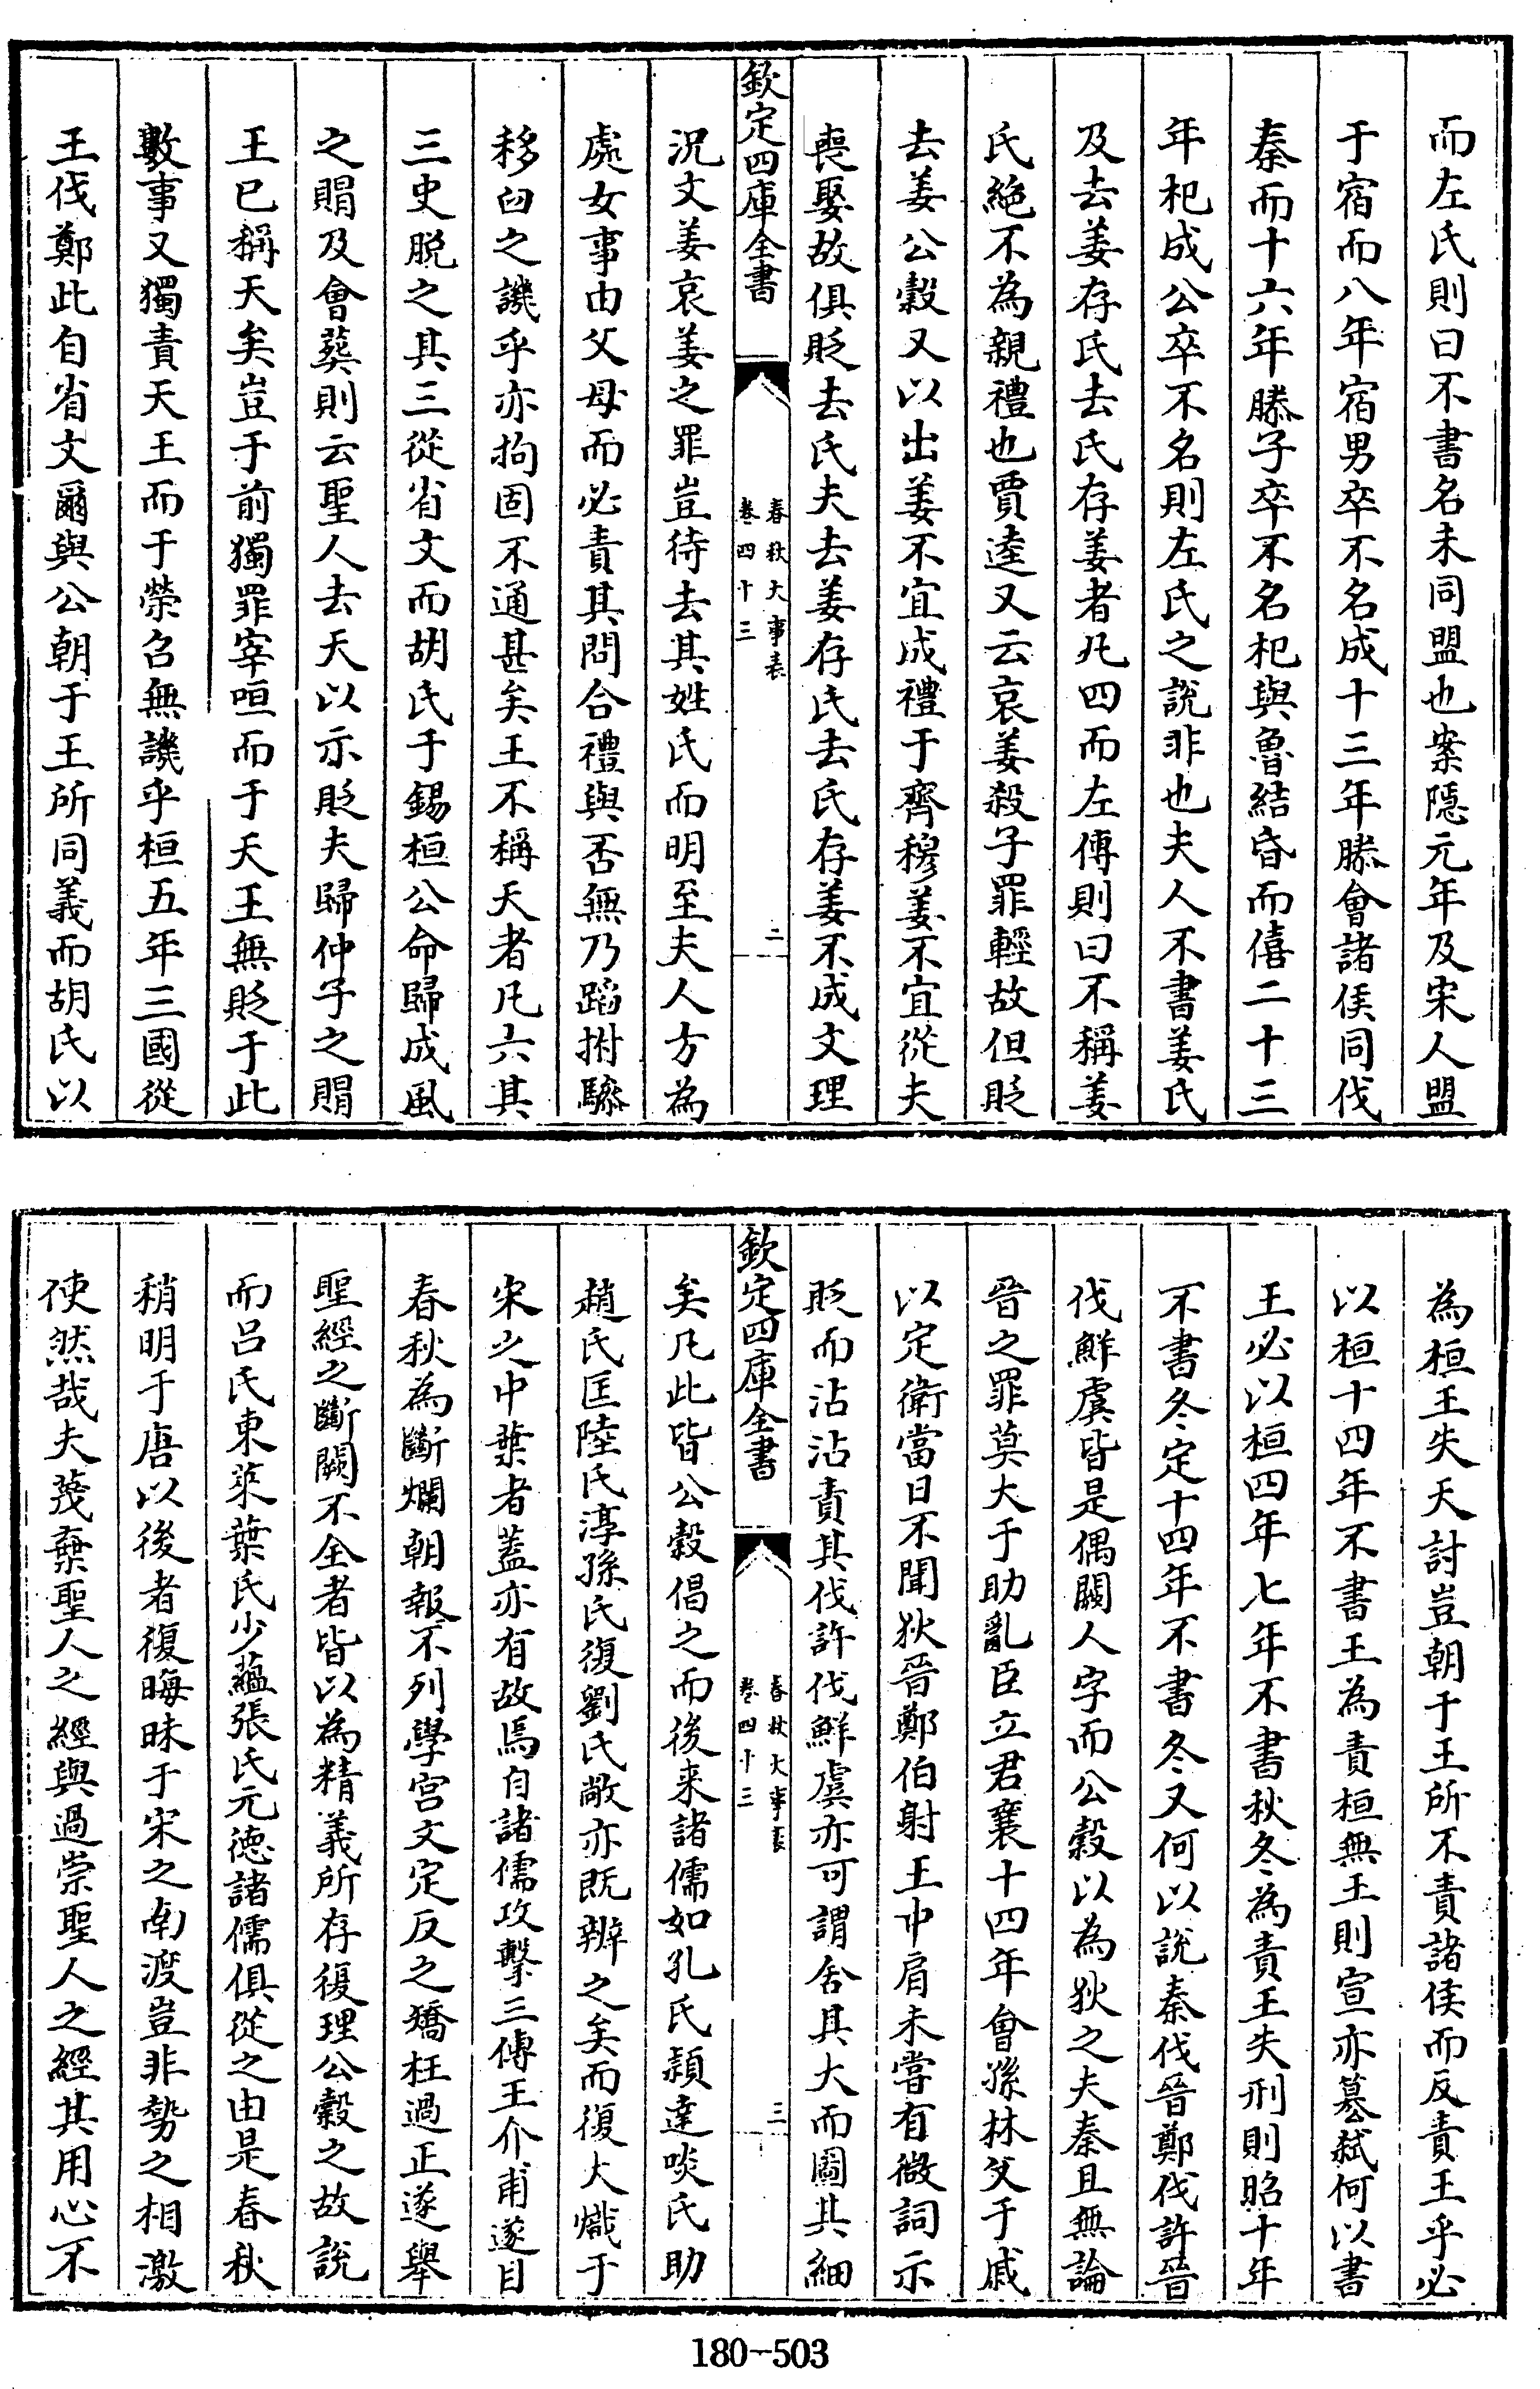 而左氏則曰不書名未同盟也案隱元年及宋人盟
于宿而八年宿男卒不名成十三年滕會諸侯同伐
秦而十六年滕子卒不名杞與魯結昏而僖二十三
年杞成公卒不名則左氏之說非也夫人不書姜氏
及去姜存氏去氏存姜者凡四而左傳則曰不稱姜
氏絶不為親禮也賈逵又云哀姜殺子罪輕故但貶
去姜公穀又以出姜不宜成禮于齊穆姜不宜從夫
喪娶故俱貶去氏夫去姜存氏去氏存姜不成文理
欽定四庫全書
春秋大事表
卷四十三
二
況文姜哀姜之罪豈待去其姓氏而明至夫人方為
處女事由父母而必責其問合禮與否無乃蹈拊驂
移臼之譏乎亦拘固不通甚矣王不稱天者凡六其
三史脫之其三從省文而胡氏于錫桓公命歸成風
之賵及會葬則云聖人去天以示貶夫歸仲子之賵
王已稱天矣豈于前獨罪宰咺而于天王無貶于此
數事又獨責天王而于榮召無譏乎桓五年三國從
王伐鄭此自省文爾與公朝于王所同義而胡氏以
為桓王失天討豈朝于王所不責諸侯而反責王乎必
以桓十四年不書王為責桓無王則宣亦簒弑何以書
王必以桓四年七年不書秋冬為責王失刑則昭十年
不書冬定十四年不書冬又何以說秦伐晉鄭伐許晉
伐鮮虞皆是偶闕人字而公穀以為狄之夫秦且無論
晉之罪莫大于助亂臣立君襄十四年會孫林父于戚
以定衛當日不聞狄晉鄭伯射王中肩未嘗有微詞示
貶而沾沾責其伐許伐鮮虞亦可謂舍其大而圖其細
欽定四庫全書
春秋大事表
卷四十三
三
矣凡此皆公穀倡之而後来諸儒如孔氏頴達啖氏助
趙氏匡陸氏淳孫氏復劉氏敞亦既辨之矣而復大熾于
宋之中葉者蓋亦有故焉自諸儒攻擊三傳王介甫遂目
春秋為斷爛朝報不列學宫文定反之矯枉過正遂舉
聖經之斷闕不全者皆以為精義所存復理公穀之故說
而吕氏東萊葉氏少藴張氏元德諸儒俱從之由是春秋
稍明于唐以後者復晦昧于宋之南渡豈非勢之相激
使然哉夫蔑棄聖人之經與過崇聖人之經其用心不
180-503